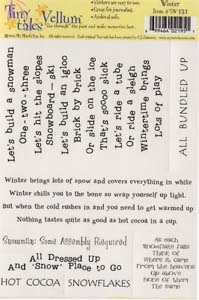 Tiny Tales
Vellum
Stickers are easy to use.
Great for journaling.
Winter
see through the past and make memories last.
Let's build a snowman
One-two-three
Let's hit the slopes
Snowboard - ski
Let's build an igloo
Brick by brick
Or slide on the ice
That's soooo slick
Let's ride a tube
Or ride a sleigh
Wintertime brings
Lots of play
ALL BUNDLED UP
Winter brings lots of snow and covers everything in white
Winter chills you to the bone so wrap yourself up tight.
But when the cold rushes in and you need to get warmed up
Nothing tastes quite as good as hot cocoa in a cup.
Snowman: Some Assembly Required
All Dressed Up
And 'Snow' Place to Go
HOT COCOA
SNOWFLAKES
As each
Snowflake falls
Think of
Where it came
From the heavens
Up above
It does
The same